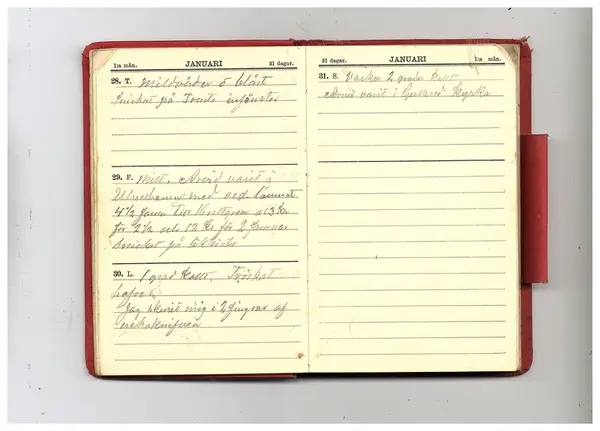 1:a mån. JANUARI 31 dagar.
28. T. Mildväder o blåst
Snickat på innfönster
29. F. Milt. Arvid varit i
Ulricehamn med ved. lämnat
4½ famn till a 13 Kr
för 2½ och 12 Kr för 2 famnar
Snickat på
30. L. 1 grad kallt. Tröskat
hafre
Jag skurit mig i 2 fingrar af
31 dagar. JANUARI 1:a mån.
31. S. Vacker 2 grader kallt
Arvid varit i Kyrka